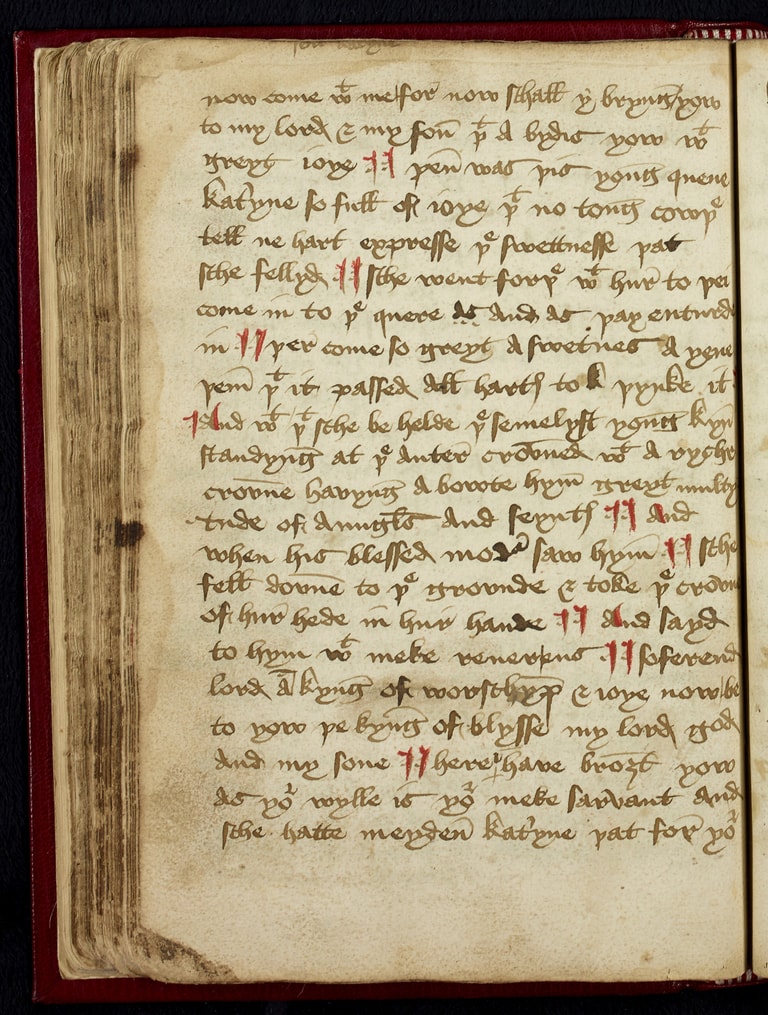 now come wͭ me for now schall y bryng yow
to my lord & my son þͭ a bydis yow wͭ
greyt ioye þen was þis yong quene
katryne so full of ioye þͭ no tong cowþᵉ
tell ne hart expresse þᵉ swettnesse þat
sche fellyd sche went forþᵉ wͭ hur to þei
come in to þᵉ quere as and as þay enturd
in þer come so greyt a swetnes a yene
þem þͭ it passed all hartis to þynke it
And wͭ þͭ sche be helde þᵉ semelyst yong kyn
standyng at þᵉ auter crowned wͭ a rychr
crowne havyng a bowte hym greyt multy
tude of aungls and seyntis And
when his blessed modʳ saw hym sche
fell downe to þᵉ grownde & toke þᵉ crown
of hur hede in hur hande And sayd
to hym wͭ meke reuerens soferend
lord a kyng of worschypp & ioye now be
to yow þe kyng of blysse my lord god
And my sone here have broʒt yow
as yoʳ wylle is yoʳ meke sarvant and
sche hatte meyden katryne þat for yoʳ